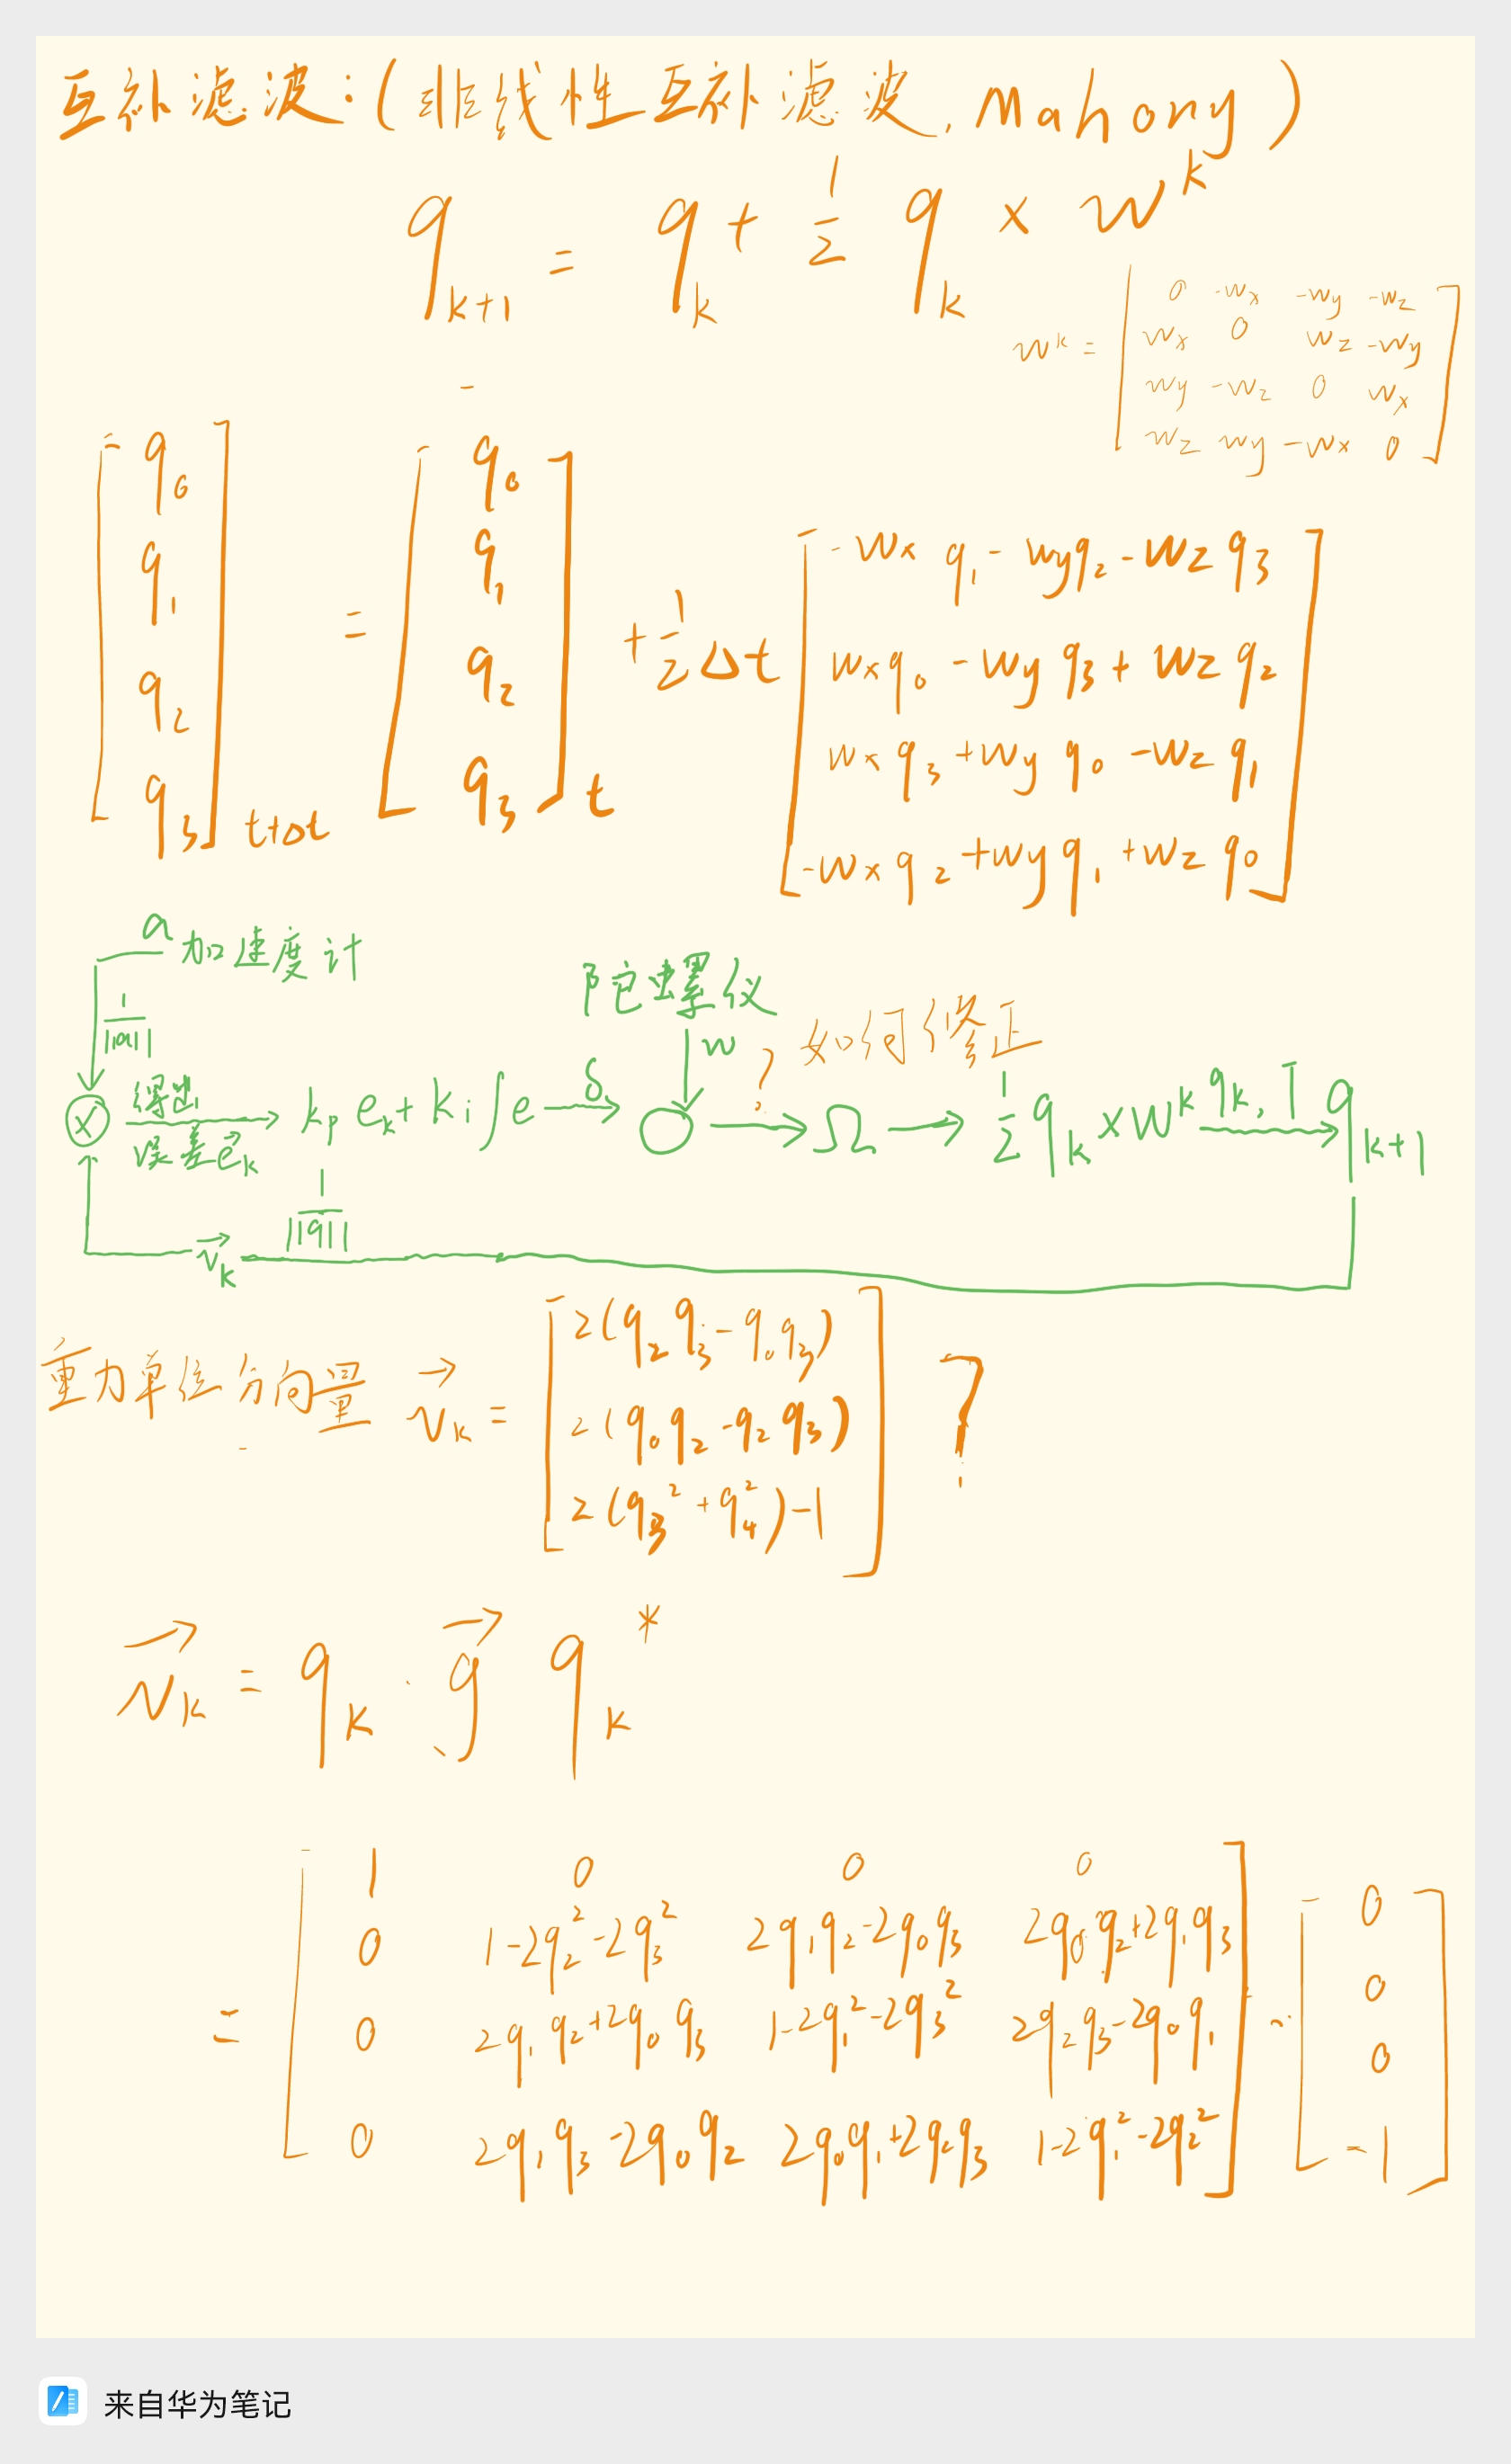 互补滤波：(非线性互补滤波, Mahony)
q_{k+1} = q_k + 1/2 q_k × w^k
w^k = [ 0 -w_x -w_y -w_z
w_x 0 w_z -w_y
w_y -w_z 0 w_x
w_z w_y -w_x 0 ]
[ q_0 q_1 q_2 q_3 ]_{t+Δt} = [ q_0 q_1 q_2 q_3 ]_t + 1/2 Δt
[ -w_x q_1 - w_y q_2 - w_z q_3
w_x q_0 - w_y q_3 + w_z q_2
w_x q_3 + w_y q_0 - w_z q_1
-w_x q_2 + w_y q_1 + w_z q_0 ]
a 加速度计
陀螺仪
1/||a||
w
? 如何修正
× 误差e_k → k_p e_k + k_i ∫e δ → ○ → Ω → 1/2 q_k × w^k q_k, T → q_{k+1}
1/||q||
v_k
重力单位方向量 v_k = [ 2(q_2 q_3 - q_0 q_3)
2(q_0 q_2 - q_2 q_3)
2(q_3^2 + q_4^2) - 1 ] ?
v_k = q_k · g q_k^*
= [ 1 0 0 0
0 1-2q_2^2-2q_3^2 2q_1q_2-2q_0q_3 2q_0q_2+2q_1q_3
0 2q_1q_2+2q_0q_3 1-2q_1^2-2q_3^2 2q_2q_3-2q_0q_1
0 2q_1q_3-2q_0q_2 2q_0q_1+2q_2q_3 1-2q_1^2-2q_2^2 ] · [ 0 0 0 -1 ]
来自华为笔记